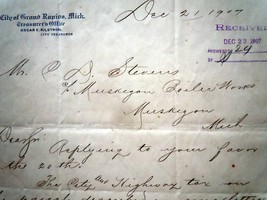 City of Grand Rapids, Mich.
Treasurer's Office
Dec 21 1907
RECEIVED
DEC 23 1907
Mr. C. D. Stevens
c/o Muskegon Boiler Works
Muskegon
Mich
Dear Sir:
Replying to your favor
the 20th.
The City Highway tax on